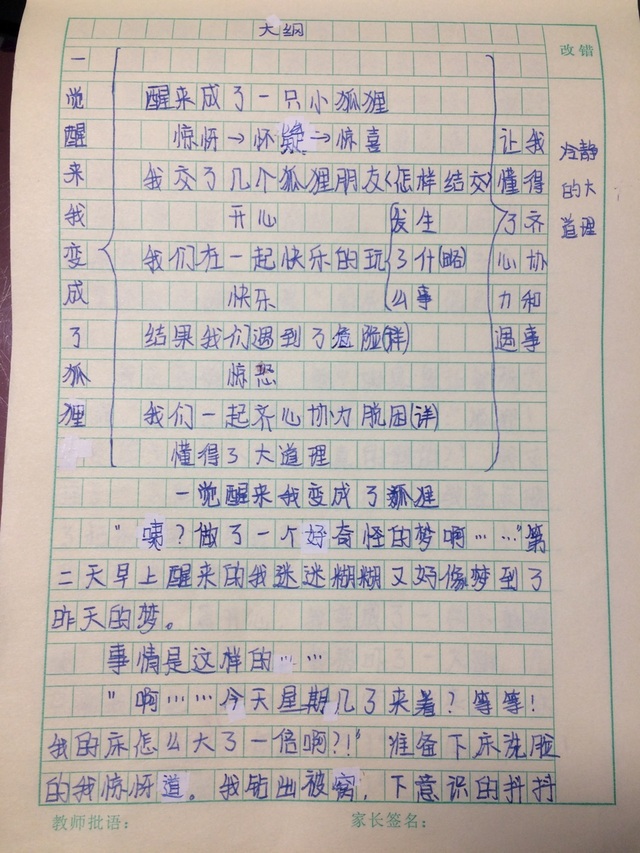 大纲
改错
一觉醒来我变成了狐狸
醒来成了一只小狐狸
惊呀→怀疑→惊喜
我交了几个狐狸朋友(怎样结交)
开心
我们在一起快乐的玩
发生了什么事(略)
快乐
结果我们遇到了危险(详)
惊恐
我们一起齐心协力脱困(详)
懂得了大道理
让我懂得了齐心协力和遇事
冷静的大道理
一觉醒来我变成了狐狸
“咦?做了一个好奇怪的梦啊……”第
二天早上醒来的我迷迷糊糊又好像梦到了
昨天的梦。
事情是这样的……
“啊……今天星期几了来着?等等!
我的床怎么大了一倍啊?!”准备下床洗脸
的我惊呀道。我钻出被窝,下意识的抖抖
教师批语:
家长签名: